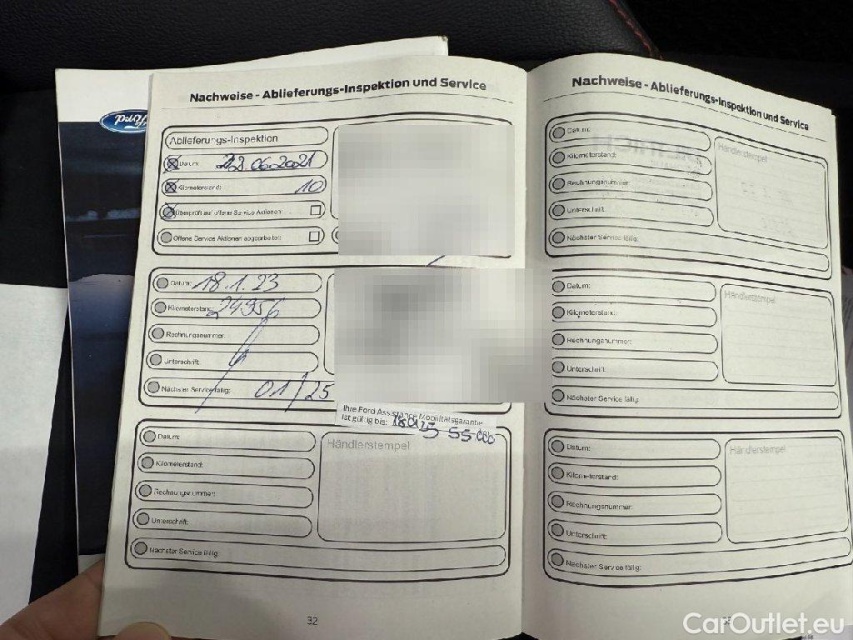 Ford
Nachweise - Ablieferungs-Inspektion und Service
Ablieferungs-Inspektion
Datum: 22.06.2021
Kilometerstand: 10
Überprüft auf offene Service Aktionen:
Offene Service Aktionen abgearbeitet:
Datum: 18.1.23
Kilometerstand: 24956
Rechnungsnummer:
Unterschrift:
Nächster Service fällig: 01/25
Ihre Ford Assistance Mobilitätsgarantie
ist gültig bis:
Datum:
Händlerstempel
Kilometerstand:
Rechnungsnummer:
Unterschrift:
Nächster Service fällig:
32
Nachweise - Ablieferungs-Inspektion und Service
Datum:
Händlerstempel
Kilometerstand:
Rechnungsnummer:
Unterschrift:
Nächster Service fällig:
Datum:
Händlerstempel
Kilometerstand:
Rechnungsnummer:
Unterschrift:
Nächster Service fällig:
Datum:
Händlerstempel
Kilometerstand:
Rechnungsnummer:
Unterschrift:
Nächster Service fällig:
CarOutlet.eu